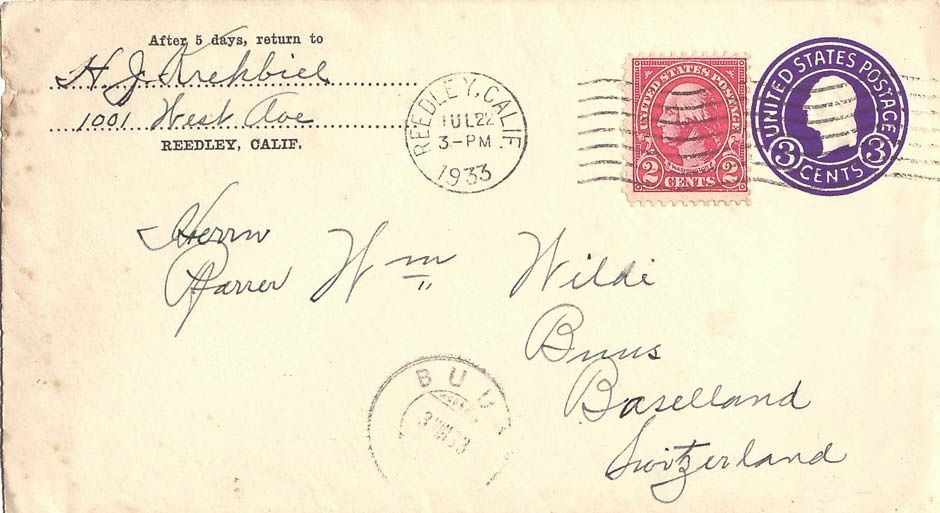 After 5 days, return to
H. J. Krehbiel
1001 West Ave
REEDLEY, CALIF.
REEDLEY, CALIF.
JUL 22
3-PM
1933
UNITED STATES POSTAGE
2 CENTS 2
UNITED STATES POSTAGE
3 CENTS 3
Herrn
Pfarrer Wm Wilde
Buus
Baselland
Switzerland
BUU